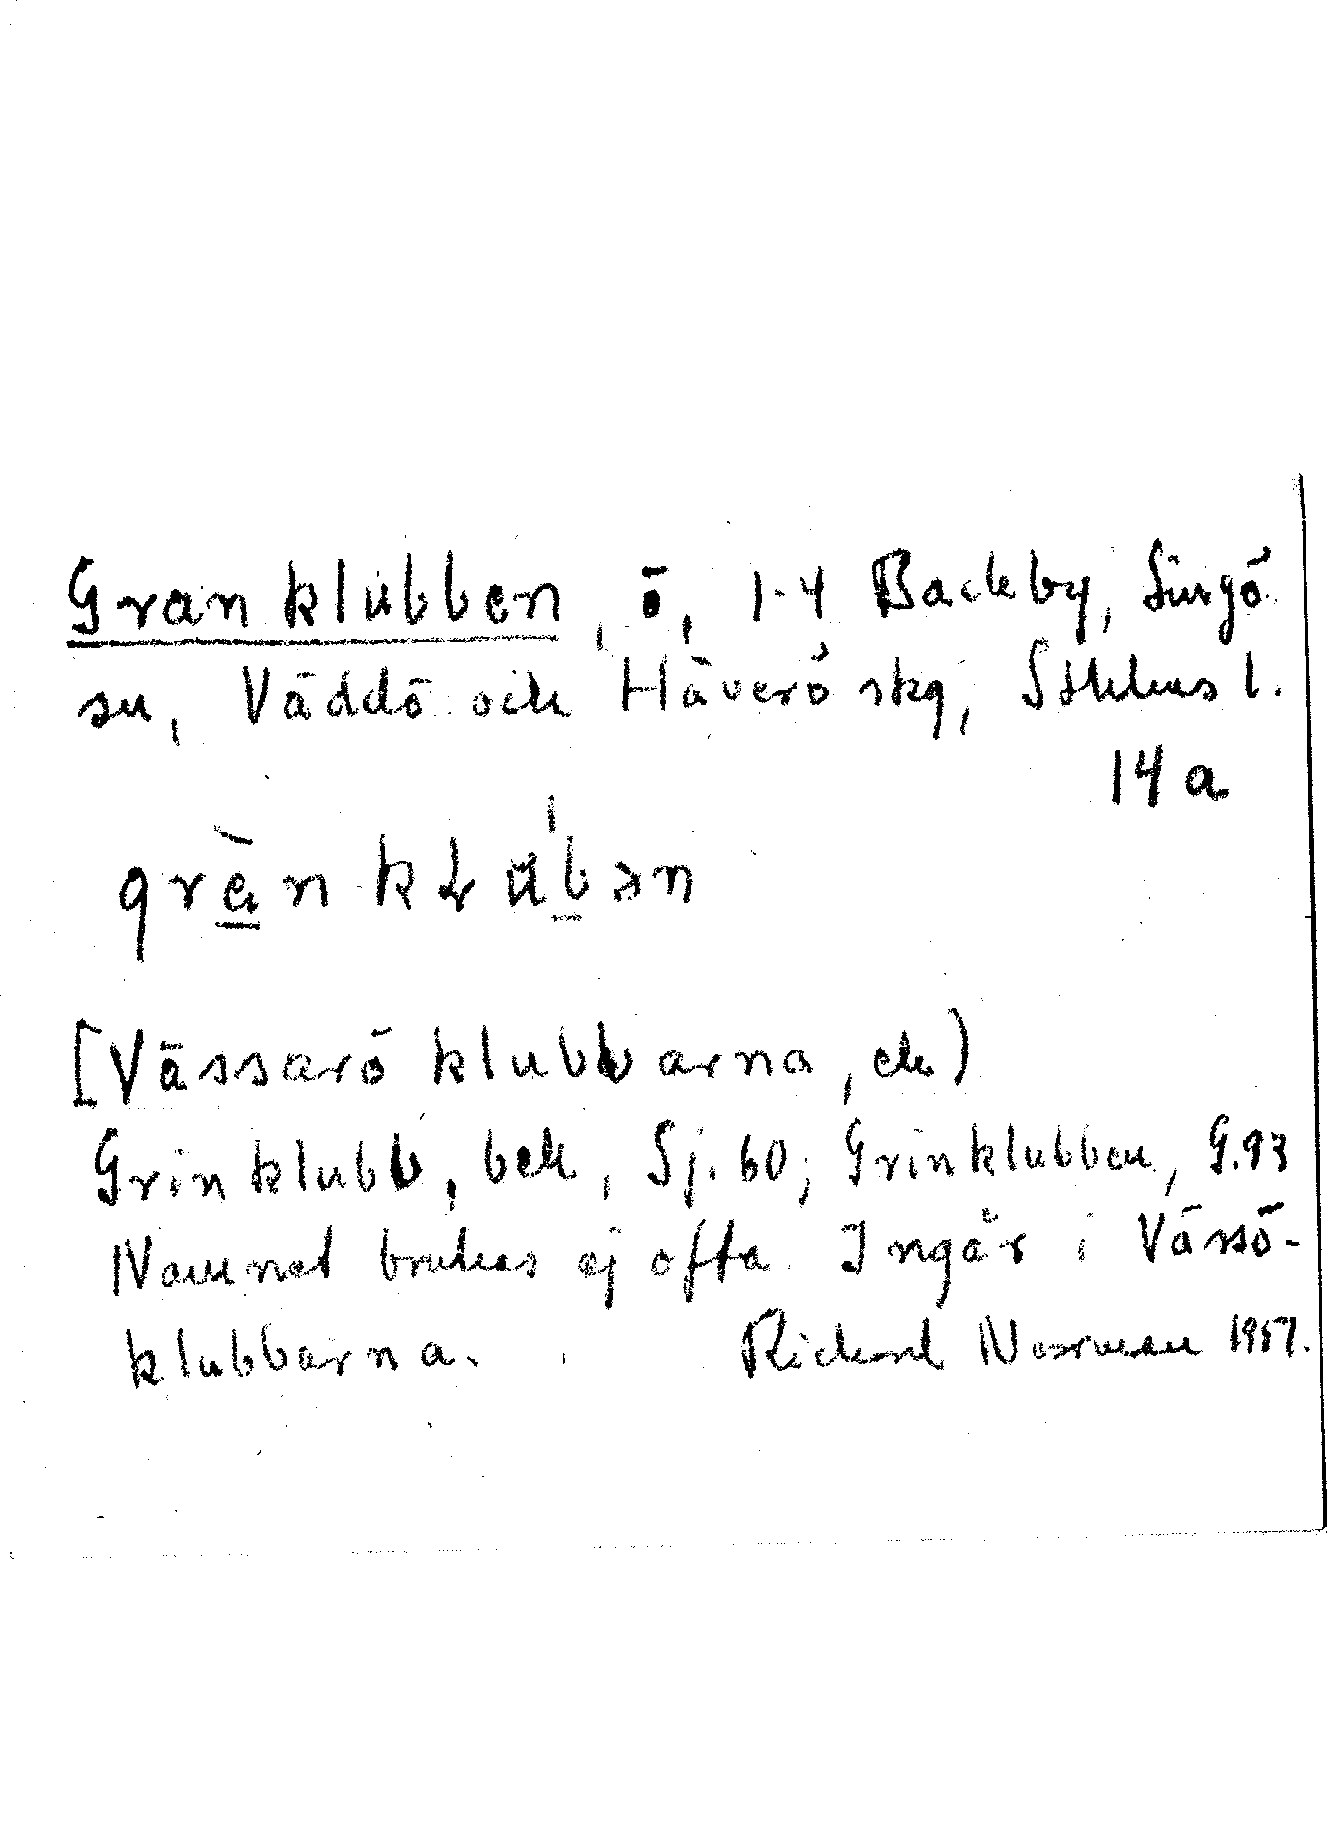 Granklubben, ö, 1-4 Backby, Singö
sn, Väddö och Häverö skg, Sthlms l.
14 a
grànkLub̲ən
[Vässarö klubbarna, ek)
Grinklubb, bek, Sj. 60; Grinklubben, G. 93
Namnet brukas ej ofta. Ingår i Vässö-
klubbarna. Rickard Norrman 1957.